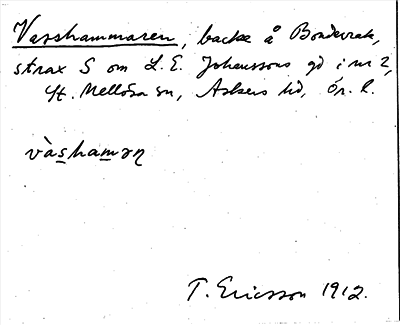 Vasshammaren, backe å Bondevrak,
strax S om L. E. Johanssons gd i nr 2,
St. Mellösa sn, Askers hd, Ör. l.
vàshamәn
T. Ericsson 1912.